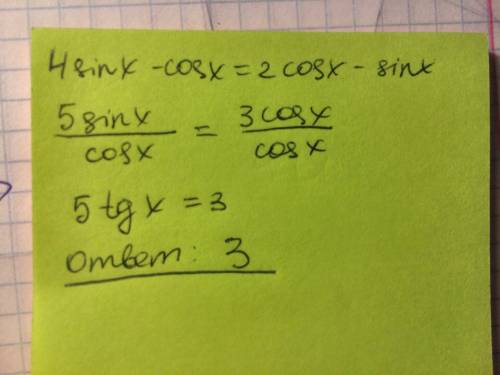 4 sinx - cosx = 2 cosx - sinx
5 sinx / cosx = 3 cosx / cosx
5 tg x = 3
Ответ: 3